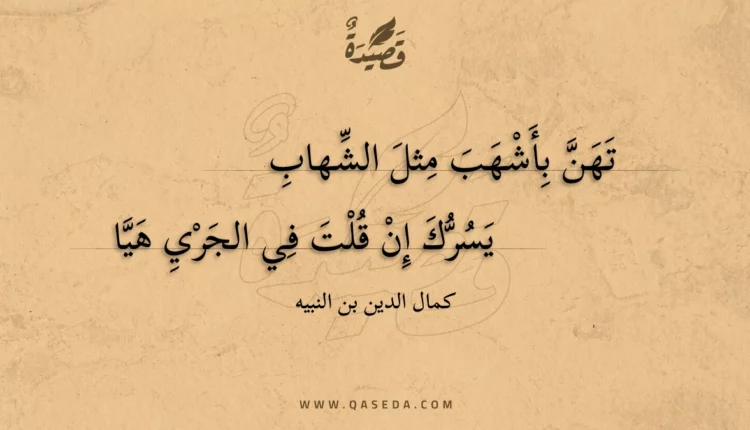 قَصِيْدَةٌ
تَهَنَّ بِأَشْهَبَ مِثلَ الشِّهابِ
يَسُرُّكَ إِنْ قُلْتَ فِي الجَرْيِ هَيَّا
كمال الدين بن النبيه
WWW.QASEDA.COM